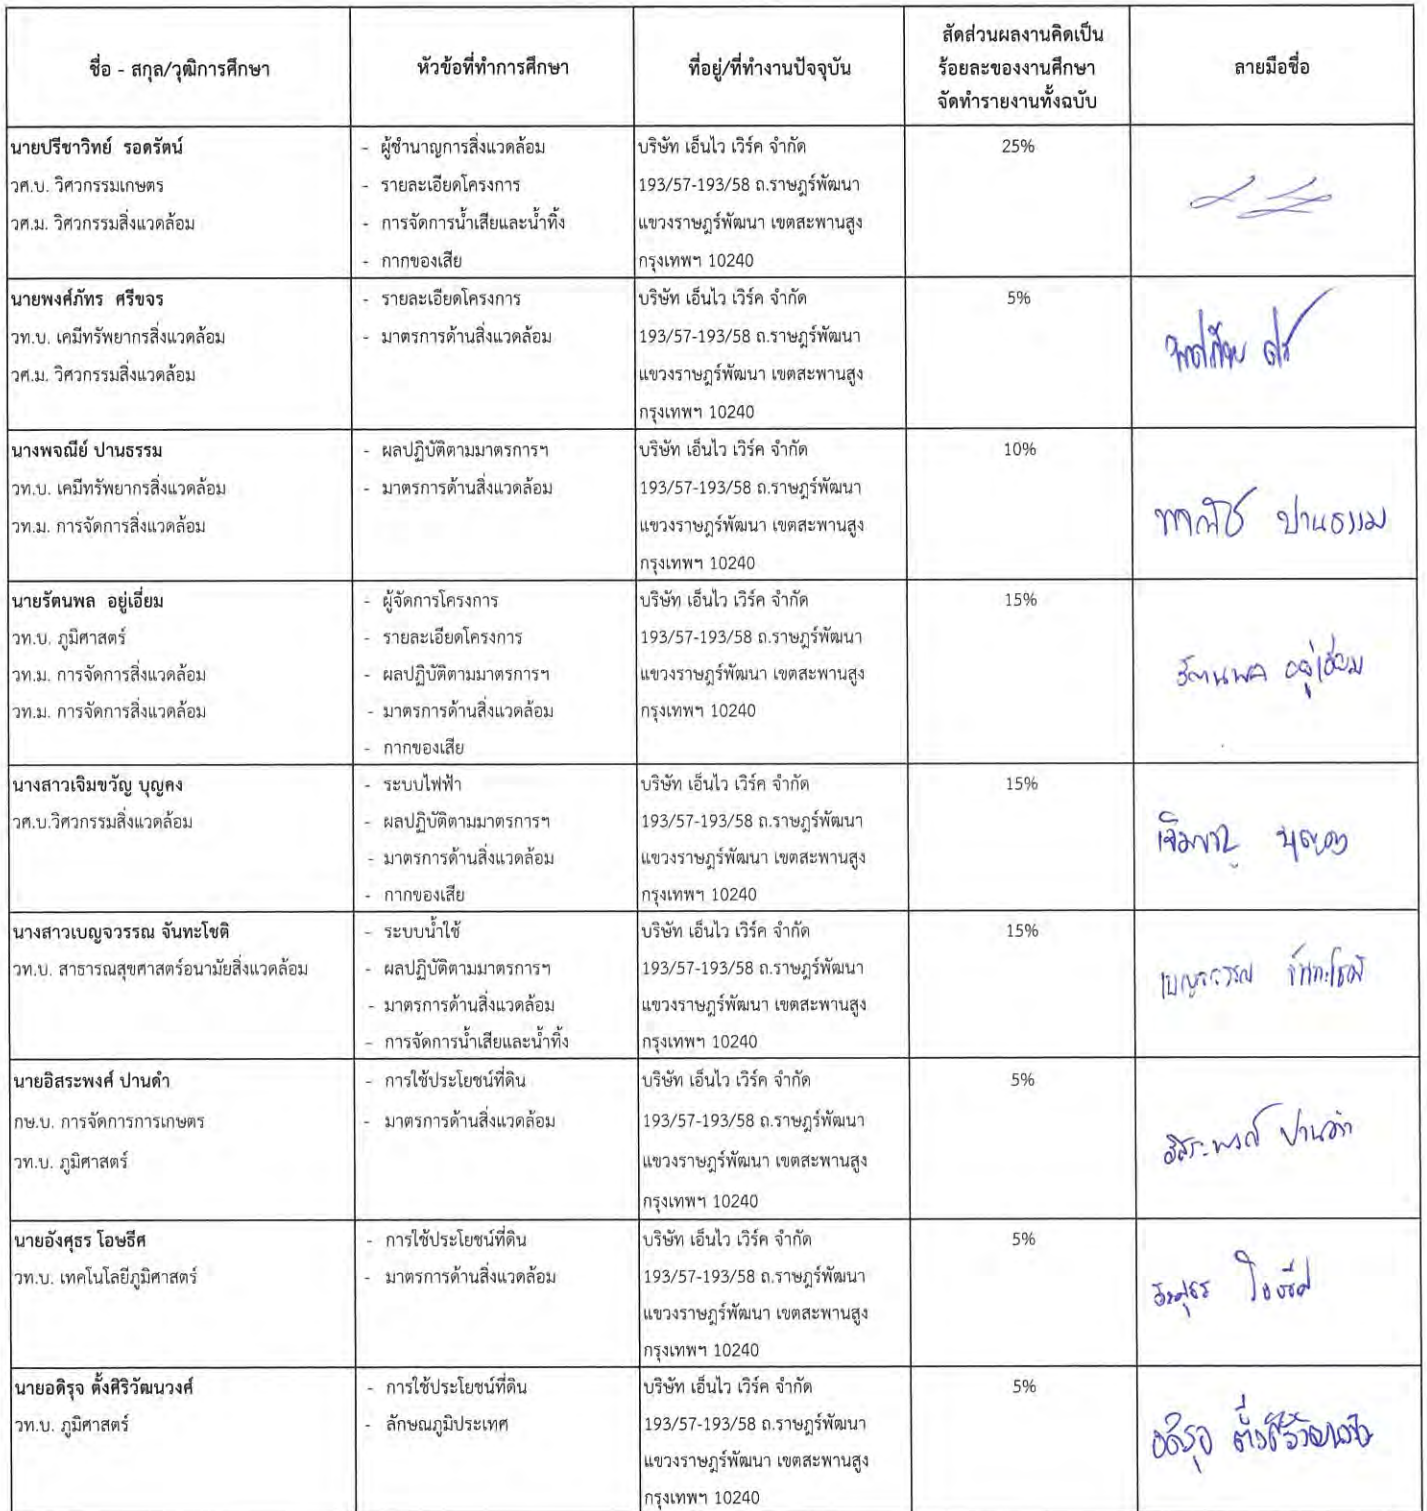 ชื่อ - สกุล/วุฒิการศึกษา
หัวข้อที่ทำการศึกษา
ที่อยู่/ที่ทำงานปัจจุบัน
สัดส่วนผลงานคิดเป็น
ร้อยละของงานศึกษา
จัดทำรายงานทั้งฉบับ
ลายมือชื่อ
นายปรีชาวิทย์ รอดรัตน์
วศ.บ. วิศวกรรมเกษตร
วศ.ม. วิศวกรรมสิ่งแวดล้อม
- ผู้ชำนาญการสิ่งแวดล้อม
- รายละเอียดโครงการ
- การจัดการน้ำเสียและน้ำทิ้ง
- กากของเสีย
บริษัท เอ็นไว เวิร์ค จำกัด
193/57-193/58 ถ.ราษฎร์พัฒนา
แขวงราษฎร์พัฒนา เขตสะพานสูง
กรุงเทพฯ 10240
25%
นายพงศ์ภัทร ศรีขจร
วท.บ. เคมีทรัพยากรสิ่งแวดล้อม
วศ.ม. วิศวกรรมสิ่งแวดล้อม
- รายละเอียดโครงการ
- มาตรการด้านสิ่งแวดล้อม
บริษัท เอ็นไว เวิร์ค จำกัด
193/57-193/58 ถ.ราษฎร์พัฒนา
แขวงราษฎร์พัฒนา เขตสะพานสูง
กรุงเทพฯ 10240
5%
นางพจณีย์ ปานธรรม
วท.บ. เคมีทรัพยากรสิ่งแวดล้อม
วท.ม. การจัดการสิ่งแวดล้อม
- ผลปฏิบัติตามมาตรการฯ
- มาตรการด้านสิ่งแวดล้อม
บริษัท เอ็นไว เวิร์ค จำกัด
193/57-193/58 ถ.ราษฎร์พัฒนา
แขวงราษฎร์พัฒนา เขตสะพานสูง
กรุงเทพฯ 10240
10%
ปานธรรม
นายรัตนพล อยู่เอี่ยม
วท.บ. ภูมิศาสตร์
วท.ม. การจัดการสิ่งแวดล้อม
วท.ม. การจัดการสิ่งแวดล้อม
- ผู้จัดการโครงการ
- รายละเอียดโครงการ
- ผลปฏิบัติตามมาตรการฯ
- มาตรการด้านสิ่งแวดล้อม
- กากของเสีย
บริษัท เอ็นไว เวิร์ค จำกัด
193/57-193/58 ถ.ราษฎร์พัฒนา
แขวงราษฎร์พัฒนา เขตสะพานสูง
กรุงเทพฯ 10240
15%
รัตนพล อยู่เอี่ยม
นางสาวเจิมขวัญ บุญคง
วศ.บ.วิศวกรรมสิ่งแวดล้อม
- ระบบไฟฟ้า
- ผลปฏิบัติตามมาตรการฯ
- มาตรการด้านสิ่งแวดล้อม
- กากของเสีย
บริษัท เอ็นไว เวิร์ค จำกัด
193/57-193/58 ถ.ราษฎร์พัฒนา
แขวงราษฎร์พัฒนา เขตสะพานสูง
กรุงเทพฯ 10240
15%
เจิมขวัญ บุญคง
นางสาวเบญจวรรณ จันทะโชติ
วท.บ. สาธารณสุขศาสตร์อนามัยสิ่งแวดล้อม
- ระบบน้ำใช้
- ผลปฏิบัติตามมาตรการฯ
- มาตรการด้านสิ่งแวดล้อม
- การจัดการน้ำเสียและน้ำทิ้ง
บริษัท เอ็นไว เวิร์ค จำกัด
193/57-193/58 ถ.ราษฎร์พัฒนา
แขวงราษฎร์พัฒนา เขตสะพานสูง
กรุงเทพฯ 10240
15%
เบญจวรรณ จันทะโชติ
นายอิสระพงศ์ ปานดำ
กษ.บ. การจัดการการเกษตร
วท.บ. ภูมิศาสตร์
- การใช้ประโยชน์ที่ดิน
- มาตรการด้านสิ่งแวดล้อม
บริษัท เอ็นไว เวิร์ค จำกัด
193/57-193/58 ถ.ราษฎร์พัฒนา
แขวงราษฎร์พัฒนา เขตสะพานสูง
กรุงเทพฯ 10240
5%
อิสระพงศ์ ปานดำ
นายอังศุธร โอษธีศ
วท.บ. เทคโนโลยีภูมิศาสตร์
- การใช้ประโยชน์ที่ดิน
- มาตรการด้านสิ่งแวดล้อม
บริษัท เอ็นไว เวิร์ค จำกัด
193/57-193/58 ถ.ราษฎร์พัฒนา
แขวงราษฎร์พัฒนา เขตสะพานสูง
กรุงเทพฯ 10240
5%
อังศุธร โอษธีศ
นายอดิรุจ ตั้งศิริวัฒนวงศ์
วท.บ. ภูมิศาสตร์
- การใช้ประโยชน์ที่ดิน
- ลักษณภูมิประเทศ
บริษัท เอ็นไว เวิร์ค จำกัด
193/57-193/58 ถ.ราษฎร์พัฒนา
แขวงราษฎร์พัฒนา เขตสะพานสูง
กรุงเทพฯ 10240
5%
อดิรุจ ตั้งศิริวัฒนวงศ์